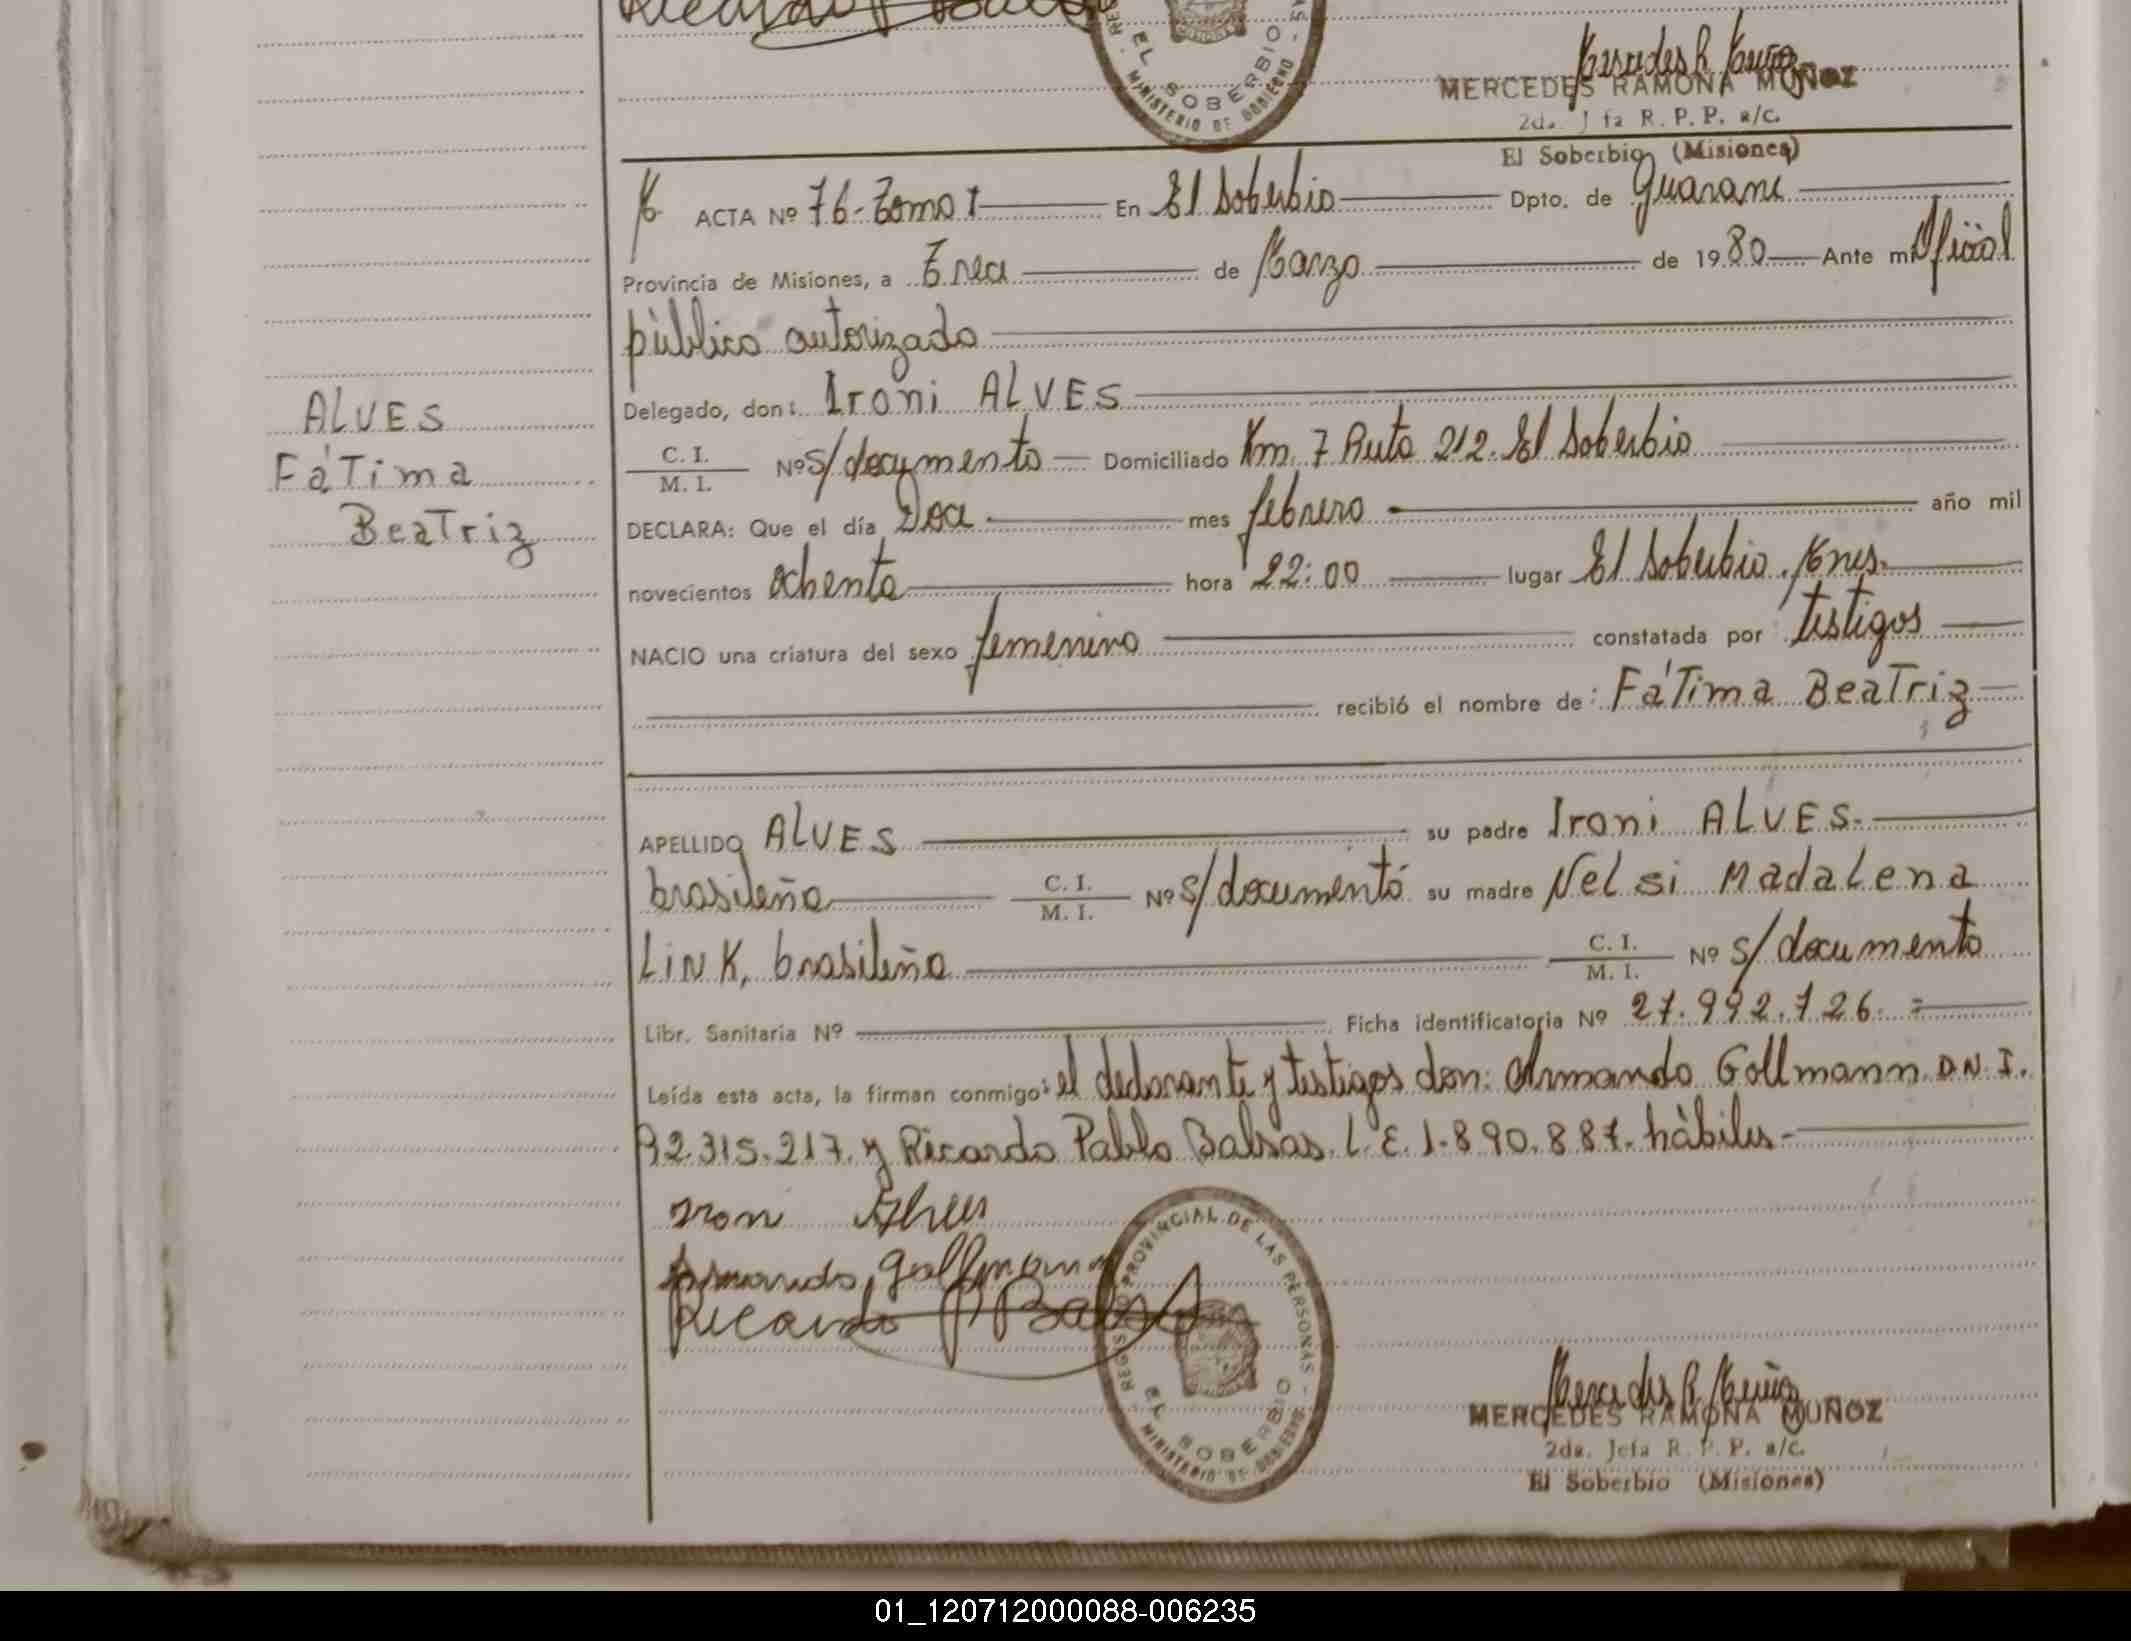 Ricardo P Balsas
REGISTRO PROVINCIAL DE LAS PERSONAS - EL SOBERBIO - MINISTERIO DE GOBIERNO
Mercedes R Muñoz
MERCEDES RAMONA MUÑOZ
2da. Jefa R. P. P. a/c.
El Soberbio (Misiones)
ACTA Nº 76-Tomo 1 En El Soberbio Dpto. de Guaraní
Provincia de Misiones, a Tres de Marzo de 1980 Ante mi Oficial
público autorizado
Delegado, don: Ironi ALVES
ALVES
Fátima
Beatriz
C. I. / M. I. Nº S/documento Domiciliado Km. 7 Ruta 212. El Soberbio
DECLARA: Que el día Dos mes febrero año mil
novecientos ochenta hora 22:00 lugar El Soberbio, Mnes.
NACIO una criatura del sexo femenino constatada por testigos
recibió el nombre de: Fátima Beatriz
APELLIDO ALVES su padre Ironi ALVES.
brasileño C. I. / M. I. Nº S/documento su madre Nelsi Madalena
LINK, brasileña C. I. / M. I. Nº S/documento
Libr. Sanitaria Nº Ficha identificatoria Nº 27.992.726. =
Leída esta acta, la firman conmigo: el declarante y testigos don: Armando Gollmann D.N.I.
92.315.217. y Ricardo Pablo Balsas. L.E. 1.890.887. hábiles-
Iron Alves
Armando Gollmann
Ricardo P Balsas
REGISTRO PROVINCIAL DE LAS PERSONAS - EL SOBERBIO - MINISTERIO DE GOBIERNO
Mercedes R. Muñoz
MERCEDES RAMONA MUÑOZ
2da. Jefa R. P. P. a/c.
El Soberbio (Misiones)
01_120712000088-006235